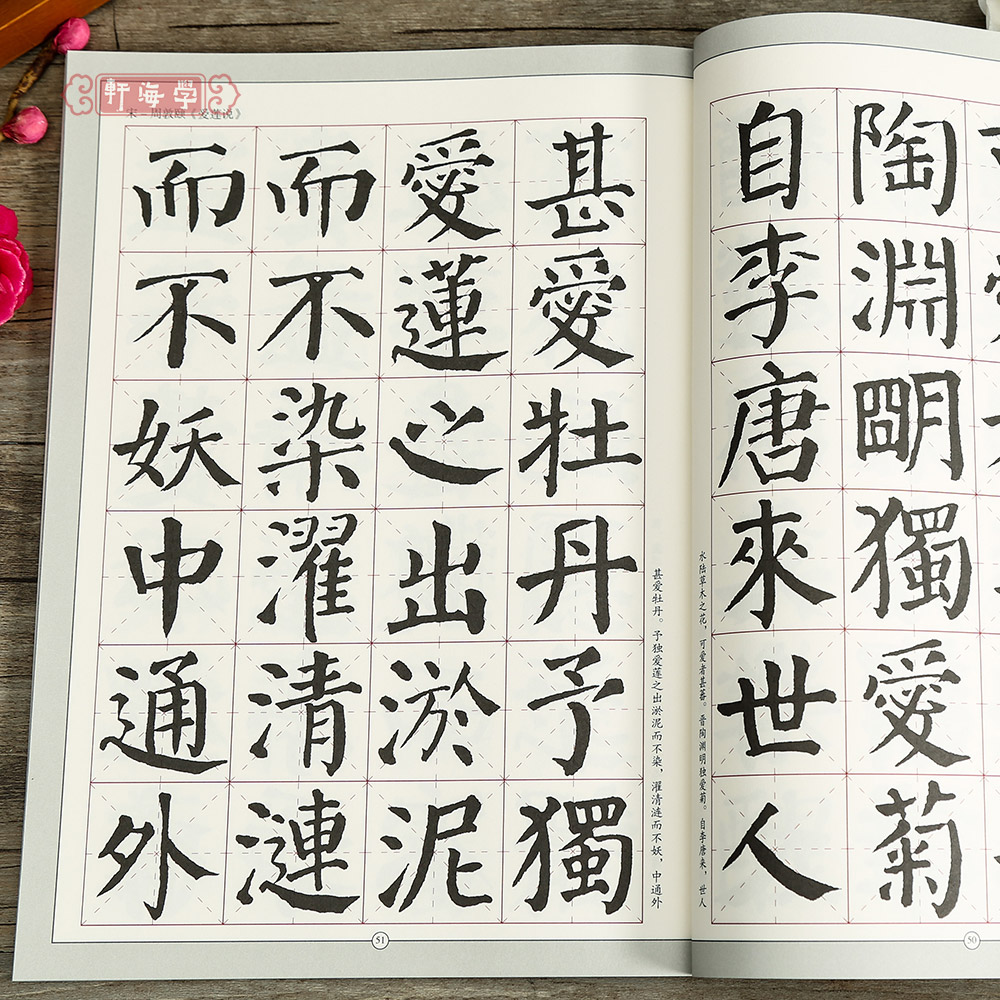 陶淵朙獨愛菊
自李唐來世人
水陆草木之花，可爱者甚蕃。晋陶渊明独爱菊。自李唐来，世人
50
甚爱牡丹。予独爱莲之出淤泥而不染，濯清涟而不妖，中通外
甚愛牡丹予獨
愛蓮之出淤泥
而不染濯清漣
而不妖中通外
軒海學
宋–周敦颐《爱莲说》
51